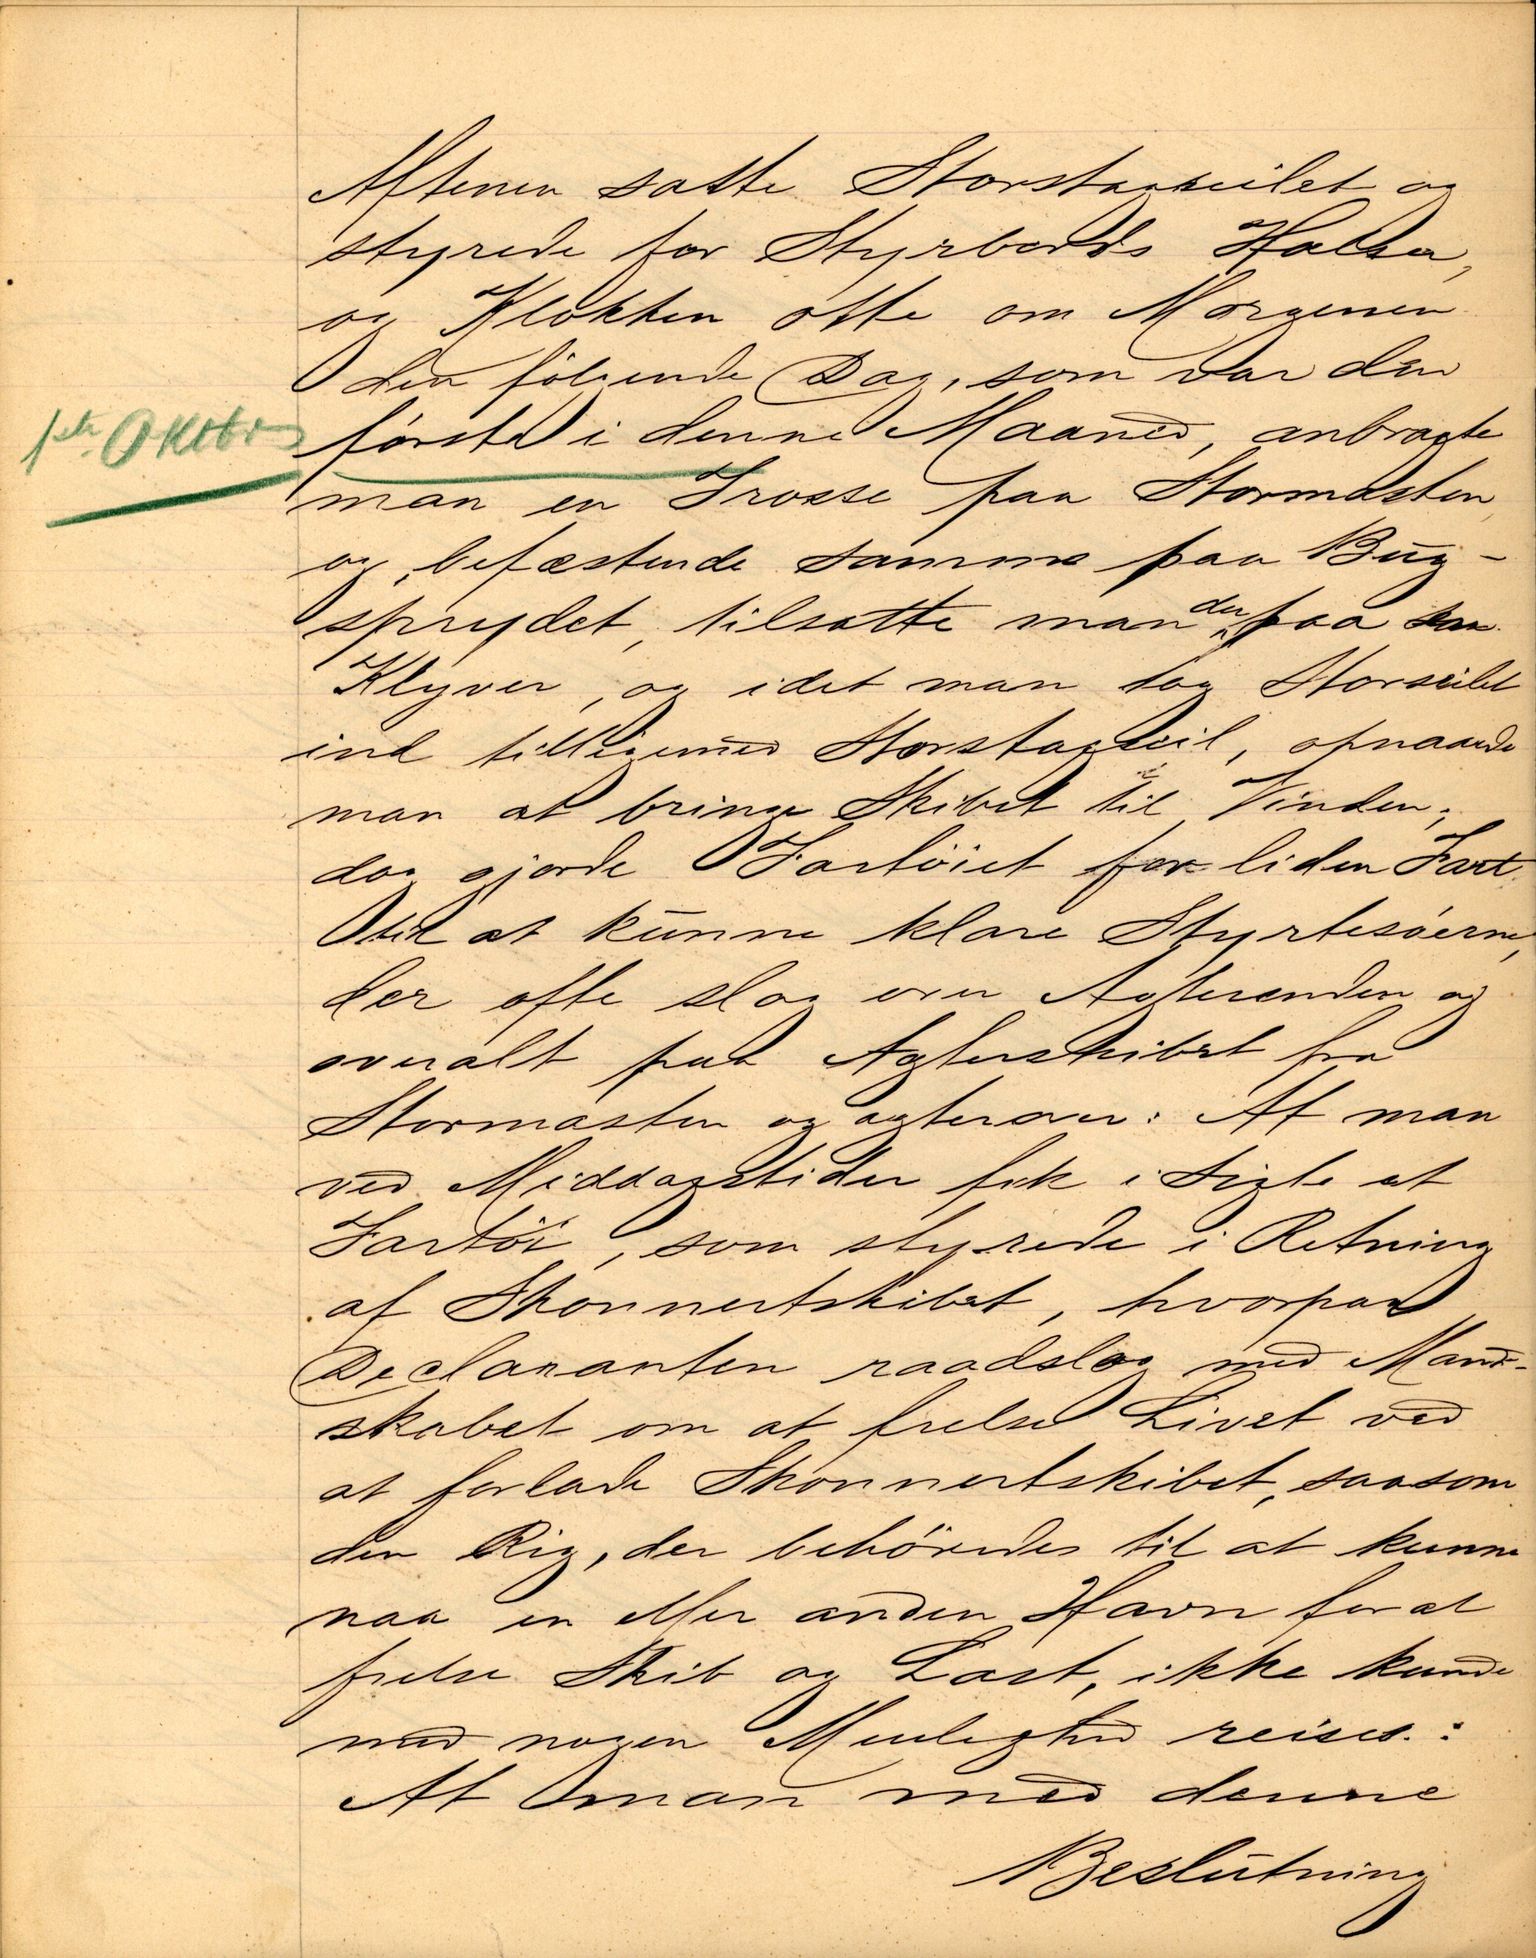 Aftenen satte Storstagseilet og
styrede for Styrbords Halser,
og Klokken otte om Morgenen
den følgende Dag, som var den
1ste Oktober
første i denne Maaned, anbragte
man en Trosse paa Stormasten,
og, befæstende samme paa Bug-
sprydet, tilsatte man der paa
Klyver, og idet man tog Storseilet
ind tilligemed Storstagseil, opnaaede
man at bringe Skibet til Vinden;
dog gjorde Fartöiet for liden Fart
til at kunne klare Styrtesöerne,
der ofte slog over Agterenden og
overalt paa Agterskibet fra
Stormasten og agterover: At man
ved Middagstider fik i Sigte et
Fartöi, som styrede i Retning
af Skonnertskibet, hvorpaa
Declaranten raadslog med Mand-
skabet om at frelse Livet ved
at forlade Skonnertskibet, saasom
den Rig, der behövedes til at kunne
naa en eller anden Havn for at
frelse Skib og Last, ikke kunde
med nogen Muelighed reises.:
At man med denne
Beslutning